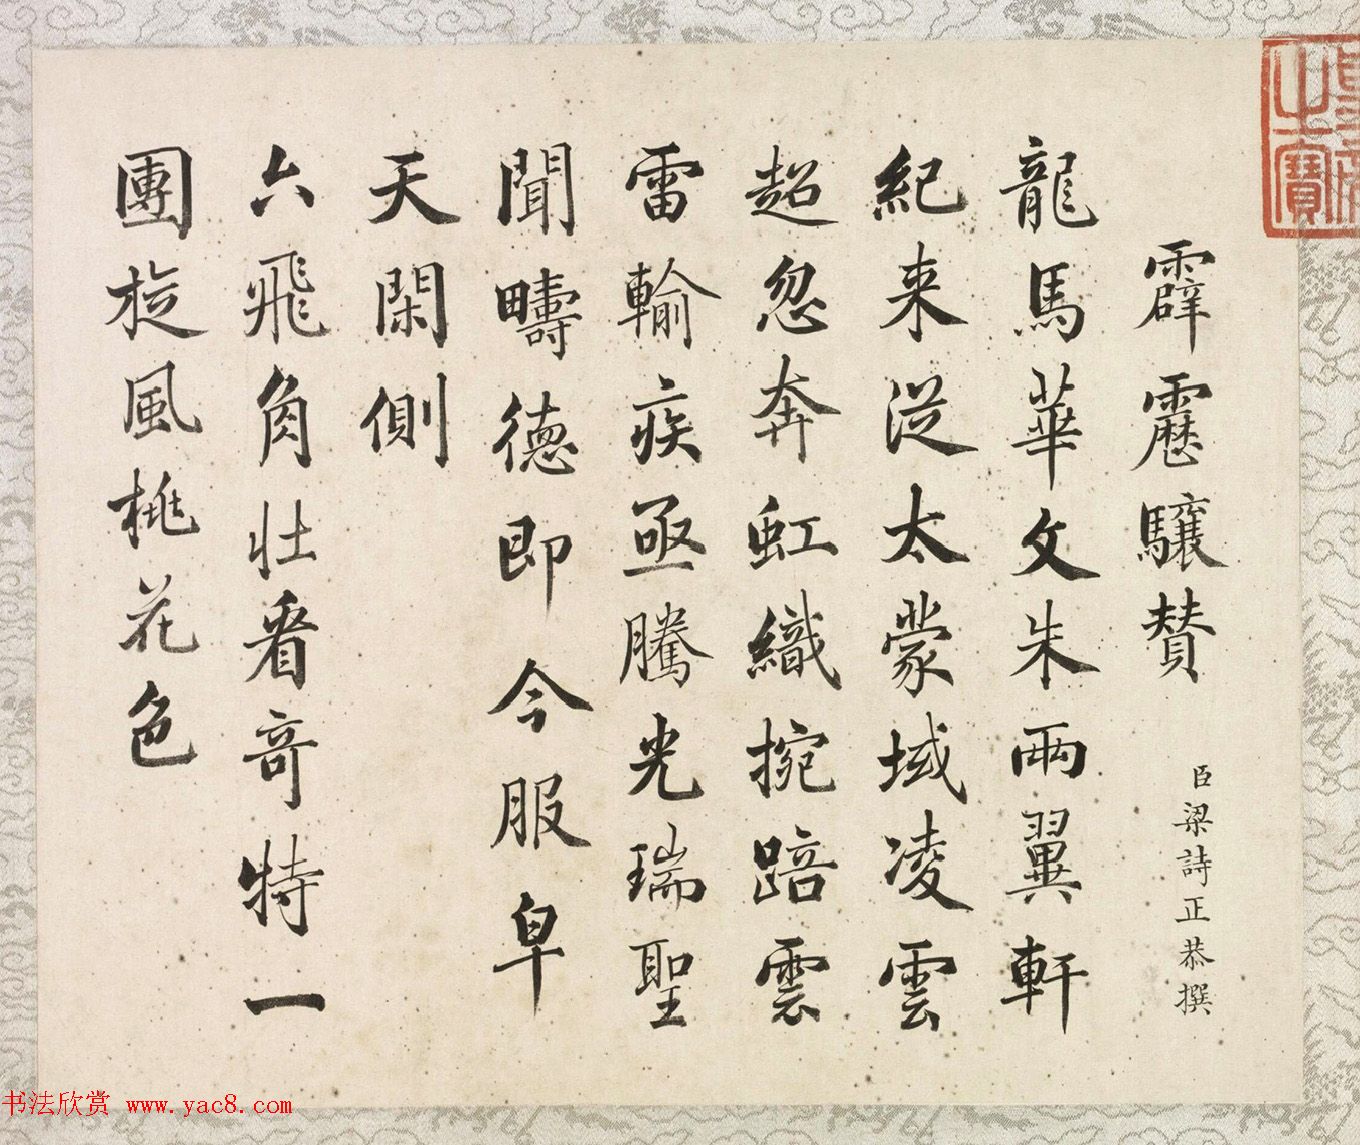 霹靂驤贊
臣梁詩正恭撰
龍馬華文朱兩翼軒
紀来從太蒙域凌雲
超忽奔虹織捥踣雲
雷輸疾亟騰光瑞聖
聞疇德即今服皁
天閑側
六飛角壯看奇特一
團旋風桃花色
之寶
书法欣赏 www.yac8.com